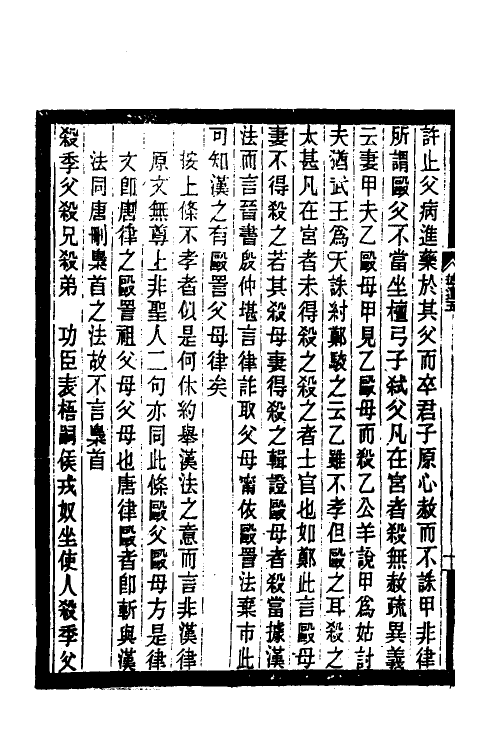 許止父病進藥於其父而卒君子原心赦而不誅甲非律
所謂毆父不當坐檀弓子弒父凡在宮者殺無赦疏異義
云妻甲夫乙毆母甲見乙毆母而殺乙公羊說甲爲姑討
夫猶武王爲天誅紂鄭駮之云乙雖不孝但毆之耳殺之
太甚凡在宮者未得殺之殺之者士官也如鄭此言毆母
妻不得殺之若其殺母妻得殺之輯證毆母者殺當據漢
法而言晉書殷仲堪言律詐取父母甯依毆詈法棄市此
可知漢之有毆詈父母律矣
按上條不孝者似是何休約舉漢法之意而言非漢律
原文無尊上非聖人二句亦同此條毆父毆母方是律
文卽唐律之毆詈祖父母父母也唐律毆者卽斬與漢
法同唐刪梟首之法故不言梟首
殺季父殺兄殺弟 功臣表梧嗣侯戎奴坐使人殺季父